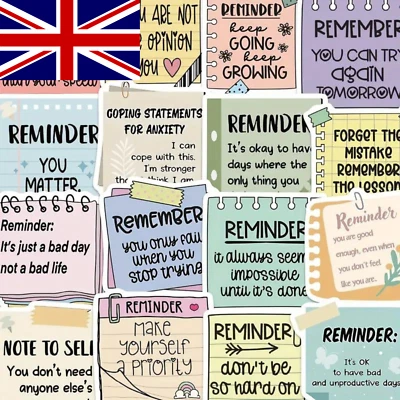 than your speed
YOU ARE NOT
OPINION
YOU
REMINDER
keep
GOING
keep
GROWING
REMEMBER
YOU CAN TRY
again
TOMORROW
REMINDER
YOU
MATTER.
COPING STATEMENTS
FOR ANXIETY
I can
cope with this.
I'm stronger
than I think I am
REMINDER
It's okay to have
days where the
only thing you
FORGET THE
MISTAKE
REMEMBER
THE LESSON
Reminder:
It's just a bad day
not a bad life
REMEMBER
you only fail
when you
stop trying
REMINDER
it always seems
impossible
until it's done
Reminder
you are good
enough, even when
you don't feel
like you are.
NOTE TO SELF
You don't need
anyone else's
REMINDER
make
yourself
a priority
REMINDER
don't be
so hard on
REMINDER:
It's OK
to have bad
and unproductive days